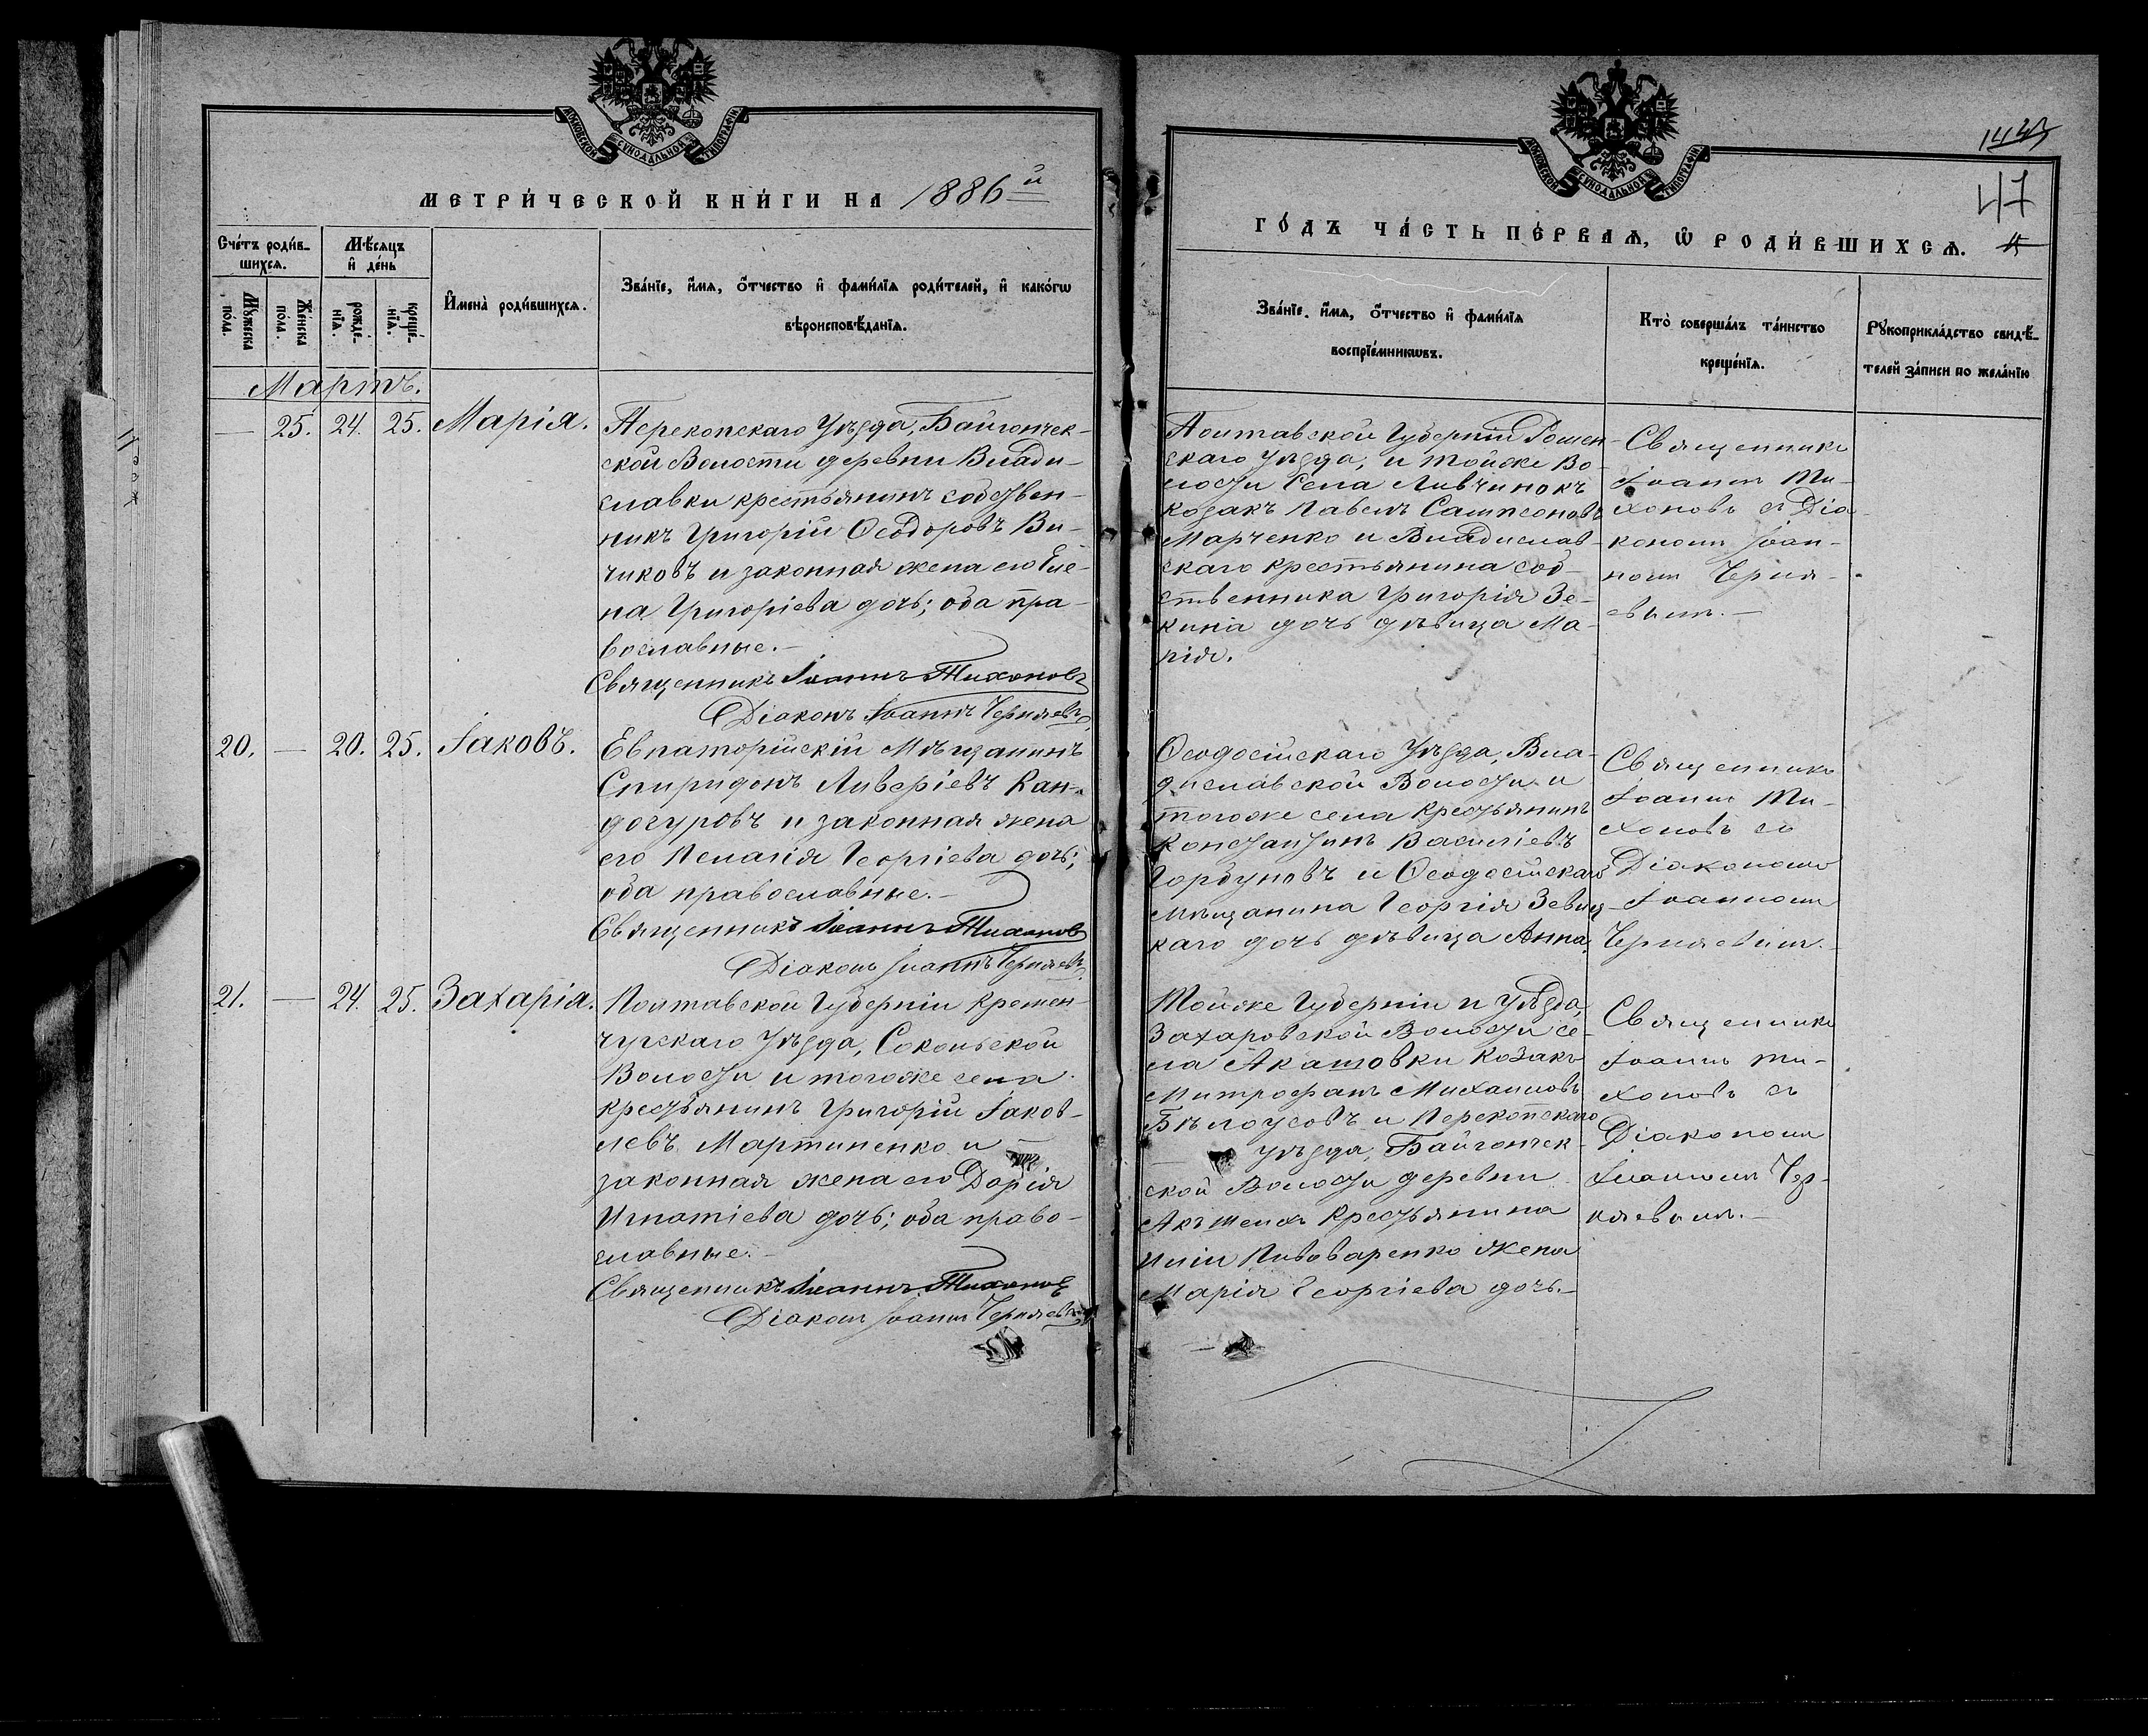 МОСКОВСКОЙ СУНОДАЛЬНОЙ ТИПОГРАФІИ
МЕТРИ́ЧЕСКОЙ КНИ́ГИ НА 1886й
Сче́тъ роди́в-
шихсѧ.
Мѣ́сяцъ
и҆ де́нь
Мꙋ́жеска
по́ла.
Же́нска
по́ла.
рожде́-
нїѧ.
креще́-
нїѧ.
И҆мена̀ роди́вшихсѧ.
Зва́нїе, и҆́мѧ, ѻ҆́тчество и҆ фами́лїѧ роди́телей, и҆ како́гѡ
вѣроисповѣ́данїѧ.
Мартъ.
— 25. 24. 25. Марія.
Перекопскаго Уѣзда, Байгончек-
ской Волости деревни Влади-
славки крестьянинъ собствен-
никъ Григорій Ѳеодоровъ Ви-
чиковъ и законная жена его Еле-
на Григоріева дочь; оба пра-
вославные.—
Священникъ Іоаннъ Тихоновъ
Діаконъ Іоаннъ Черняевъ
20. — 20. 25. Іаковъ.
Евпаторійскій Мѣщанинъ
Спиридонъ Ливеріевъ Кан-
догуровъ и законная жена
его Пелагія Георгіева дочь;
оба православные.—
Священникъ Іоаннъ Тихоновъ
Діаконъ Іоаннъ Черняевъ
21. — 24. 25. Захарія.
Полтавской Губерніи Кремен-
чугскаго Уѣзда, Сокольской
Волости и тогоже села
крестьянинъ Григорій Іаков-
левъ Мартиненко и —
законная жена его Дарія
Игнатіева дочь; оба право-
славные.—
Священникъ Іоаннъ Тихоновъ
Діаконъ Іоаннъ Черняевъ
МОСКОВСКОЙ СУНОДАЛЬНОЙ ТИПОГРАФІИ
47
ГО́ДЪ ЧА́СТЬ ПЕ́РВАѦ, Ѽ РОДИ́ВШИХСѦ.
Зва́нїе, и҆́мѧ, ѻ҆́тчество и҆ фами́лїѧ
воспрїе́мникѡвъ.
Кто̀ соверша́лъ та́инство
креще́нїѧ.
Рꙋкоприкла́дство свидѣ́-
телей за́писи по жела́нїю
Полтавской Губерніи Рошен-
скаго уѣзда, и тойже Во-
лости Села Ливчинокъ
козакъ Павелъ Сампсоновъ
Марченко и Владислав-
скаго крестьянина соб-
ственника Григорія Зе-
кина дочь дѣвица Ма-
рія.
Священникъ
Іоаннъ Ти-
хоновъ съ Діа-
кономъ Іоан-
номъ Черня-
евымъ.—
Ѳеодосійскаго Уѣзда, Вла-
диславской Волости и
тогоже села крестьянинъ
Константинъ Василіевъ
Горбуновъ и Ѳеодосійскаго
мѣщанина Георгія Зевиц-
каго дочь дѣвица Анна.
Священникъ
Іоаннъ Ти-
хоновъ съ
Діакономъ
Іоанномъ
Черняевымъ.—
Тойже Губерніи и Уѣзда,
Захаровской Волости се-
ла Акатовки Козакъ
Митрофанъ Михаиловъ
Бѣлоусовъ и Перекопскаго
— уѣзда, Байгончек-
ской Волости деревни
Акъ Шеихъ Крестьянина
Иліи Пивоваренко жена
Марія Георгіева дочь.—
Священникъ
Іоаннъ Ти-
хоновъ съ
Діакономъ
Іоанномъ Чер-
няевымъ.—